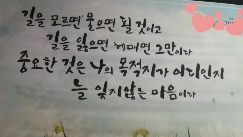 길을 모르면 물으면 될 것이고
길을 잃으면 헤매면 그만이다
중요한 것은 나의 목적지가 어디인지
늘 잊지않는 마음이다